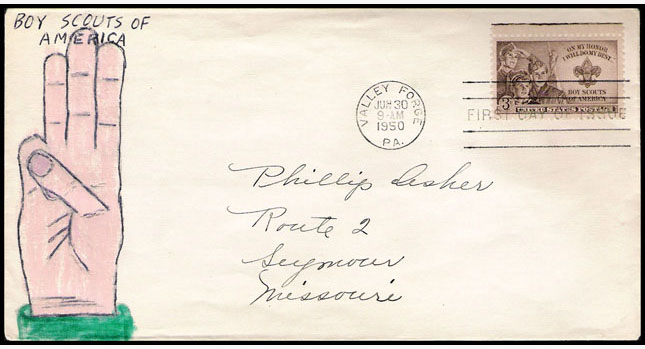 BOY SCOUTS OF
AMERICA
ON MY HONOR
I WILL DO MY BEST
BOY SCOUTS
OF AMERICA
3¢
UNITED STATES POSTAGE
FIRST DAY OF ISSUE
VALLEY FORGE
JUN 30
9-AM
1950
PA.
Phillip Asher
Route 2
Seymour
Missouri